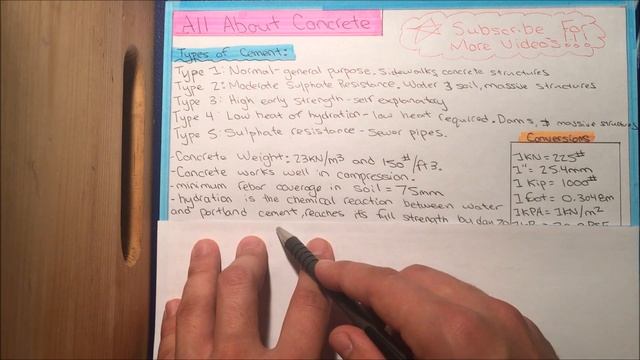 All About Concrete
Subscribe For
More Videos...
Types of Cement:
Type 1: Normal-general purpose. Sidewalks concrete structures
Type 2: Moderate Sulphate Resistance. Water & soil, massive structures
Type 3: High early strength-self explanatory
Type 4: Low heat of hydration-low heat required. Dams, & massive structures
Type 5: Sulphate resistance-Sewer pipes.
-Concrete Weight: 23KN/m3 and 150#/ft3.
-Concrete works well in compression.
-minimum rebar coverage in soil = 75mm
-hydration is the chemical reaction between water
and portland cement, reaches its full strength by day
Conversions
1KN = 225#
1" = 25.4mm
1 Kip = 1000#
1 foot = 0.3048m
1KPA = 1KN/m2